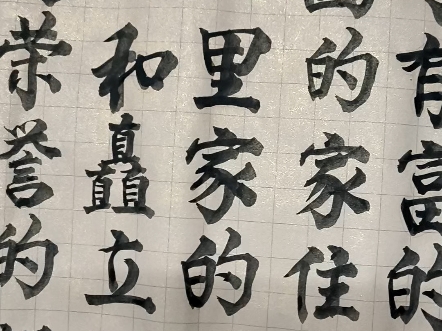 有富的
的家住
里家的
和矗立
荣誉的